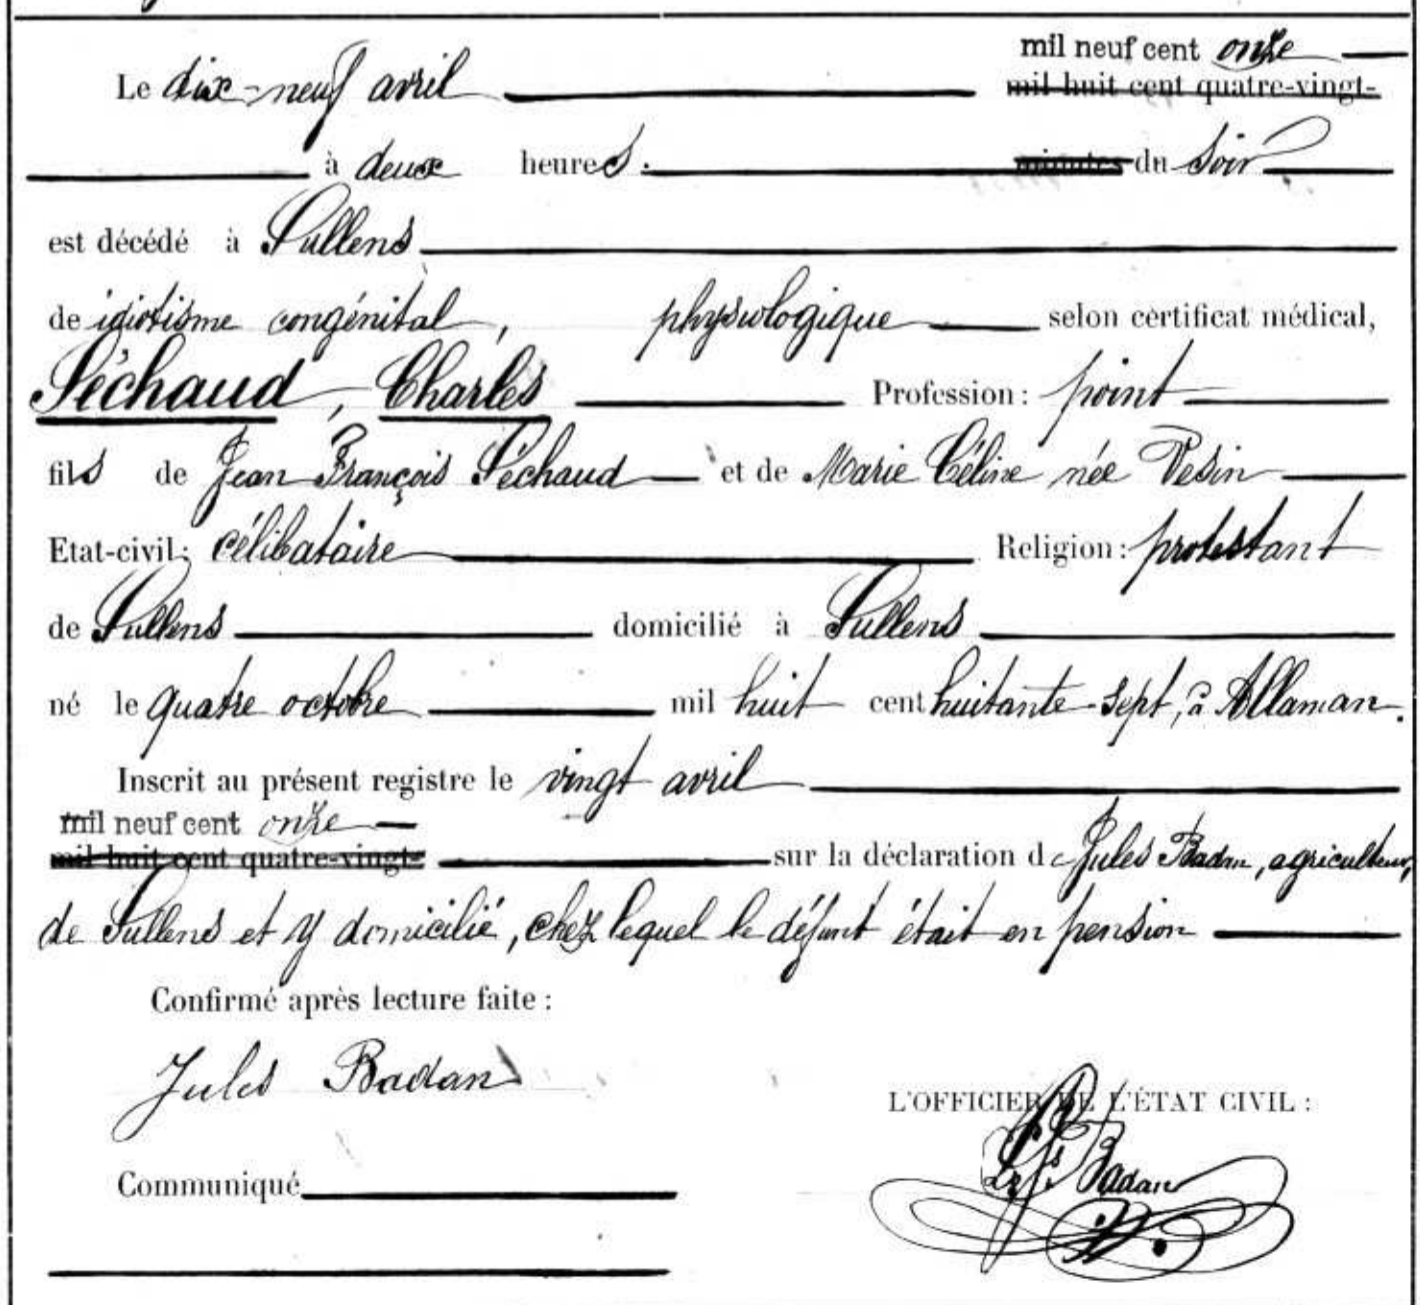 mil neuf cent onze
Le dix-neuf avril mil huit cent quatre-vingt-
à deux heures. minutes du soir
est décédé à Sullens
de idiotisme congénital, physiologique selon certificat médical,
Séchaud, Charles Profession : point
fils de Jean François Séchaud et de Marie Céline née Pesin
Etat-civil : célibataire Religion : protestant
de Sullens domicilié à Sullens
né le quatre octobre mil huit cent huitante-sept, à Allaman.
Inscrit au présent registre le vingt avril
mil neuf cent onze
mil huit cent quatre-vingt- sur la déclaration de Jules Badan, agriculteur,
de Sullens et y domicilié, chez lequel le défunt était en pension
Confirmé après lecture faite :
Jules Badan
L'OFFICIER DE L'ÉTAT CIVIL :
Badan
Communiqué